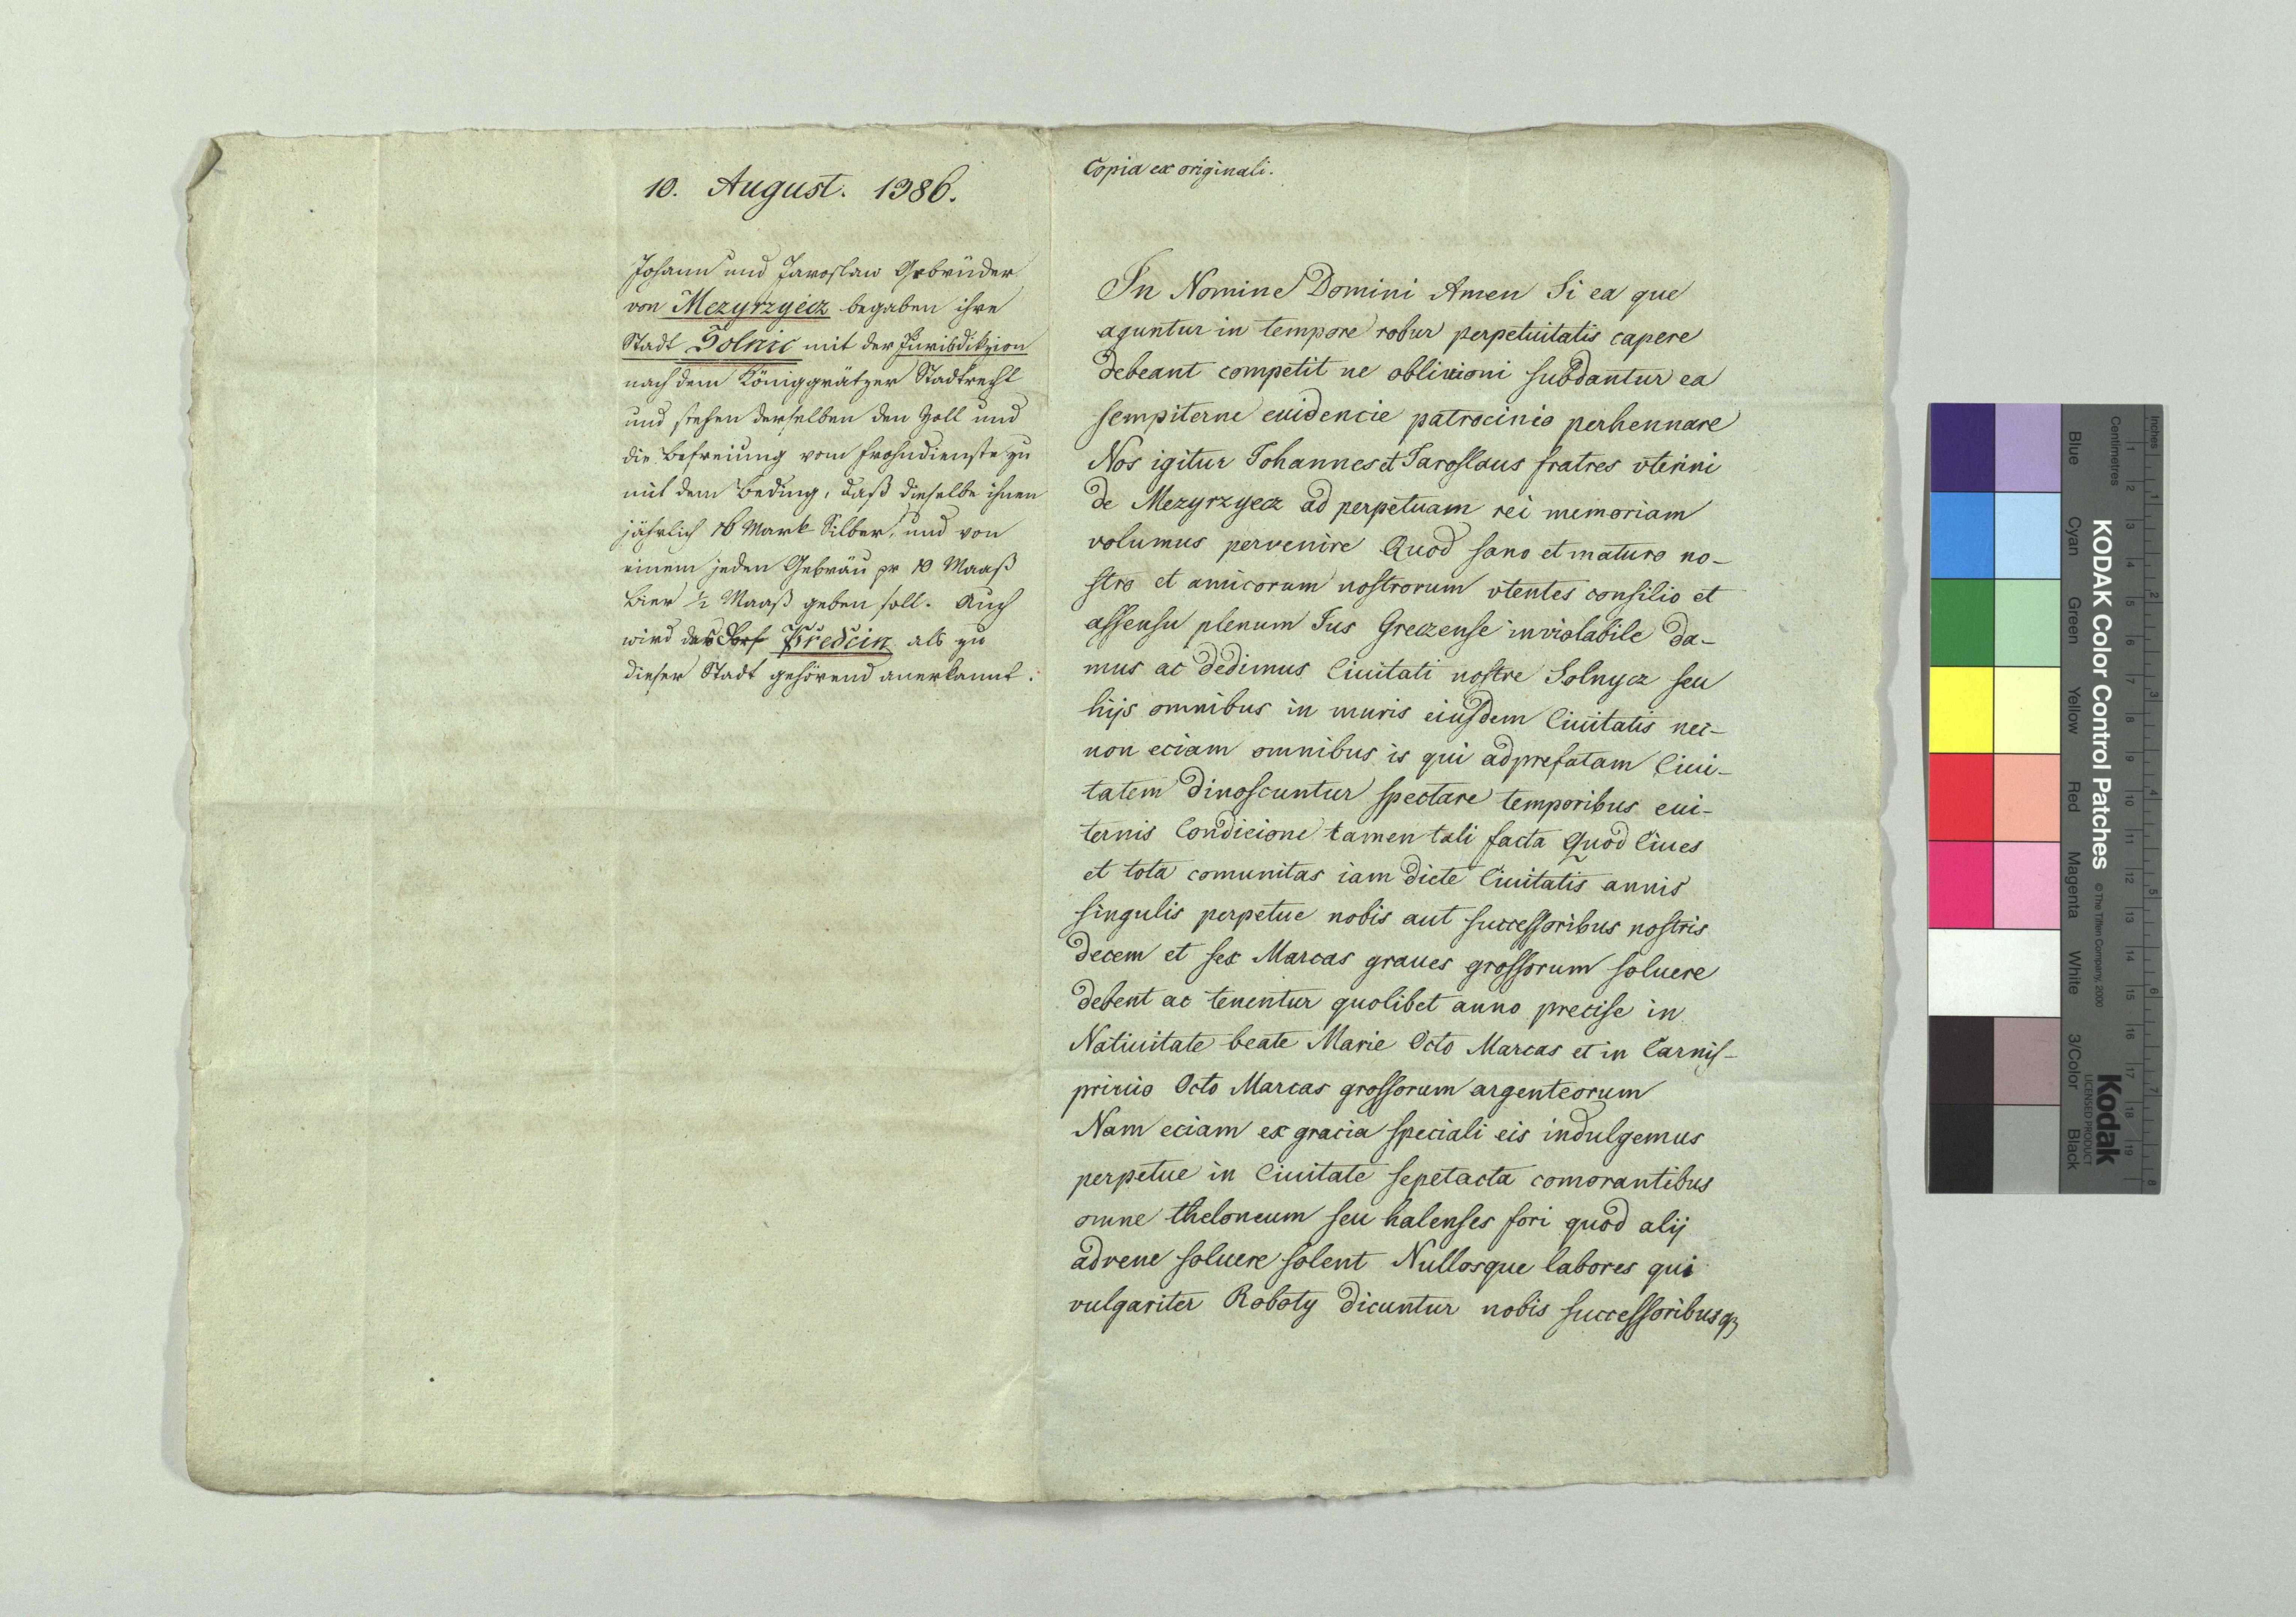 10. August. 1386.
Johann und Jaroslaw Gebrüder
von Mezyrzyecz begaben ihre
Stadt Solnic mit der Jurisdikzion
nach dem Königgrätzer Stadtrecht
und stehen derselben den Zoll und
die Befreiung vom Frohndienste zu
mit dem Beding, daß dieselbe ihnen
jährlich 16 Mark Silber, und von
einem jeden Gebräu pr 10 Maaß
Bier ½ Maaß geben soll. Auch
wird das Dorf Předcin als zu
dieser Stadt gehörend anerkannt.
Copia ex originali.
In Nomine Domini Amen Si ea que
aguntur in tempore robur perpetuitatis capere
debeant competit ne oblivioni subdantur ea
sempiterne euidencie patrocinio perhennare
Nos igitur Johannes et Jaroslaus fratres vterini
de Mezyrzyecz ad perpetuam rei memoriam
volumus pervenire Quod sano et maturo no-
stro et amicorum nostrorum vtentes consilio et
assensu plenum Jus Greczense inviolabile da-
mus ac dedimus Ciuitati nostre Solnycz seu
hijs omnibus in muris eiusdem Ciuitatis nec-
non eciam omnibus is qui ad prefatam Ciui-
tatem dinoscuntur spectare temporibus eui-
ternis Condicione tamen tali facta Quod Ciues
et tota comunitas iam dicte Ciuitatis annis
singulis perpetue nobis aut successoribus nostris
decem et sex Marcas graues grossorum soluere
debent ac tenentur quolibet anno precise in
Natiuitate beate Marie Octo Marcas et in Carnis-
priuio Octo Marcas grossorum argenteorum
Nam eciam ex gracia speciali eis indulgemus
perpetue in Ciuitate sepetacta comorantibus
omne theloneum seu halenses fori quod alij
advene soluere solent Nullosque labores qui
vulgariter Roboty dicuntur nobis successoribusqȝ
Inches
Centimetres
Blue
Cyan
Green
Yellow
Red
Magenta
White
3/Color
Black
KODAK Color Control Patches
© The Tiffen Company, 2000
Kodak
LICENSED PRODUCT